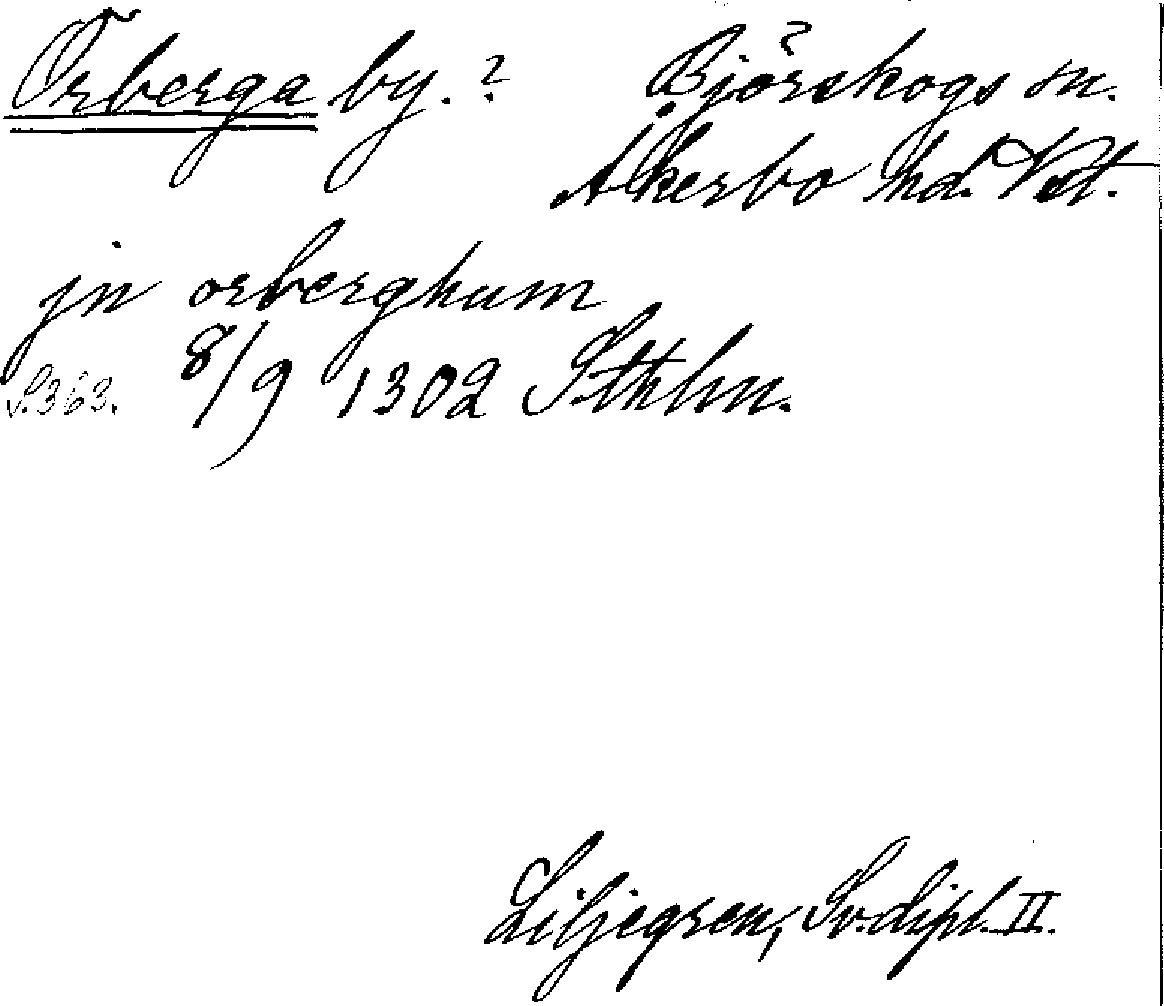 Örberga by. ? Björskogs sn.
Åkerbo hd. Vstl.
jn orberghum
S. 363. 8/9 1302 Sthlm.
Liljegren, Sv. dipl. II.